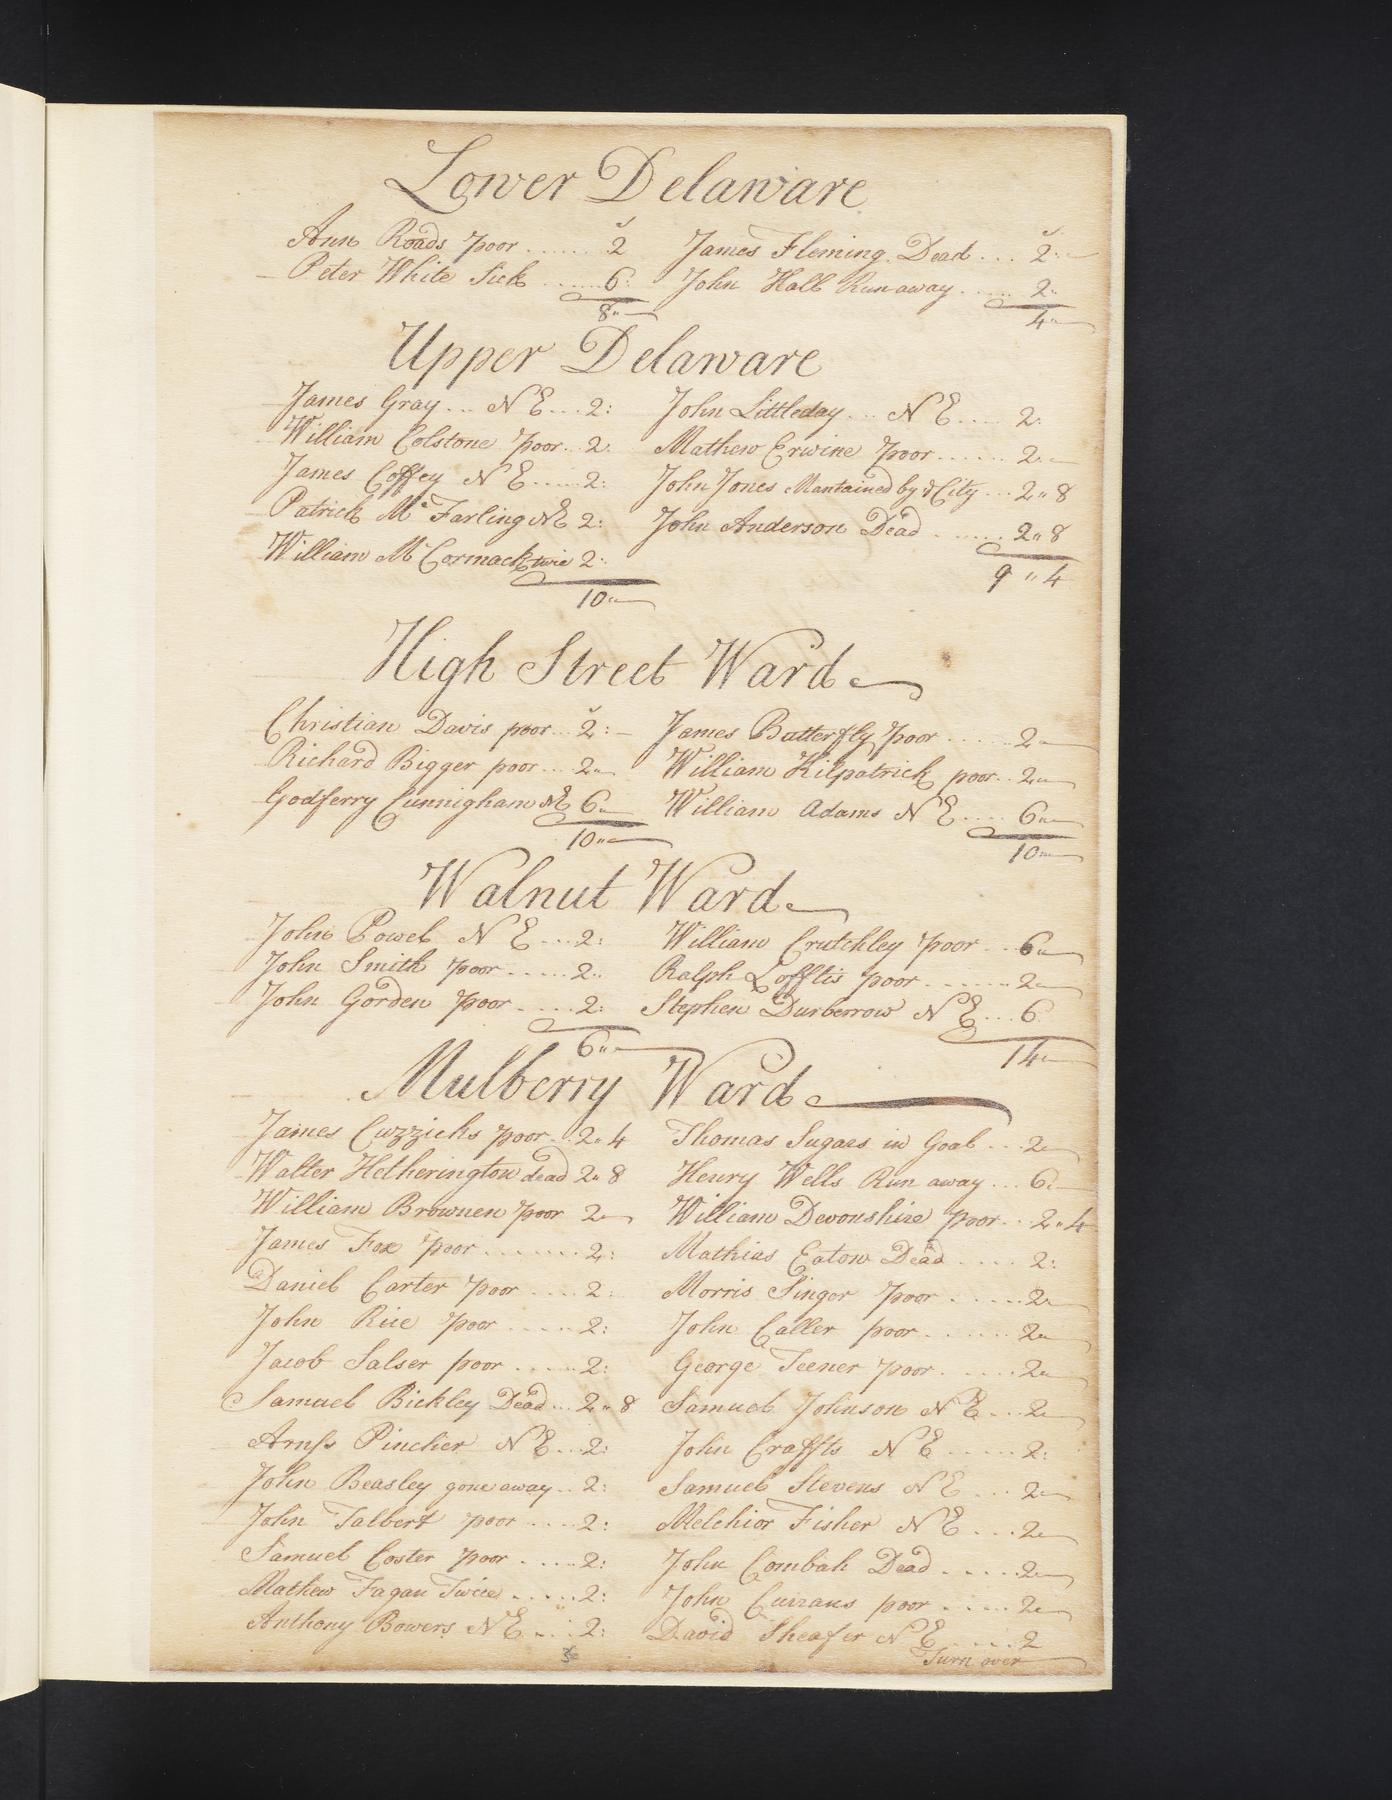 Lower Delaware
Ann Roads poor ...... 2 James Fleming Dead ... 2:
Peter White Sick ...... 6: John Hall Run away ..... 2"
8" 4"
Upper Delaware
James Gray ... N E ... 2: John Littleday ... N E .... 2:
William Colstone poor .. 2: Mathew Erwine poor ...... 2:
James Coffey N E ..... 2: John Jones Mantained by ye City ... 2"8
Patrick Mc Farling NE 2: John Anderson Dead ...... 2"8
William Mc Cormack twice 2: 9"4
10"
High Street Ward
Christian Davis poor ... 2: James Butterfly poor ..... 2"
Richard Bigger poor ... 2" William Kilpatrick poor .. 2"
Godferry Cunnigham NE 6" William Adams N E .... 6"
10" 10"
Walnut Ward
John Powel N E ... 2: William Crutchley poor ... 6"
John Smith poor ..... 2" Ralph Lofftis poor ....... 2"
John Gorden poor .... 2: Stephen Durberrow N E ... 6
6" 14"
Mulberry Ward
James Cuzzichs poor .. 2"4 Thomas Sugars in Goal ... 2"
Walter Hetherington dead 2"8 Henry Wells Run away ... 6"
William Brownen poor 2" William Devonshire poor .. 2"4
James Fox poor ....... 2: Mathias Eaton Dead .... 2:
Daniel Carter poor .... 2: Morris Singer poor ..... 2"
John Rice poor ..... 2: John Caller poor ...... 2"
Jacob Salser poor ..... 2: George Teener poor ..... 2"
Samuel Bickley Dead ... 2"8 Samuel Johnson N E ... 2"
Pincher N E ... 2: John Craffts N E ..... 2:
John Beasley gone away .. 2: Samuel Stevens N E ... 2"
John Talbert poor .... 2: Melchior Fisher N E ... 2"
Samuel Coster poor .... 2: John Combah Dead ..... 2"
Mathew Fagan Twice ..... 2: John Currans poor ..... 2"
Anthony Bowers N E ... 2: David Sheafer N E .... 2
Turn over